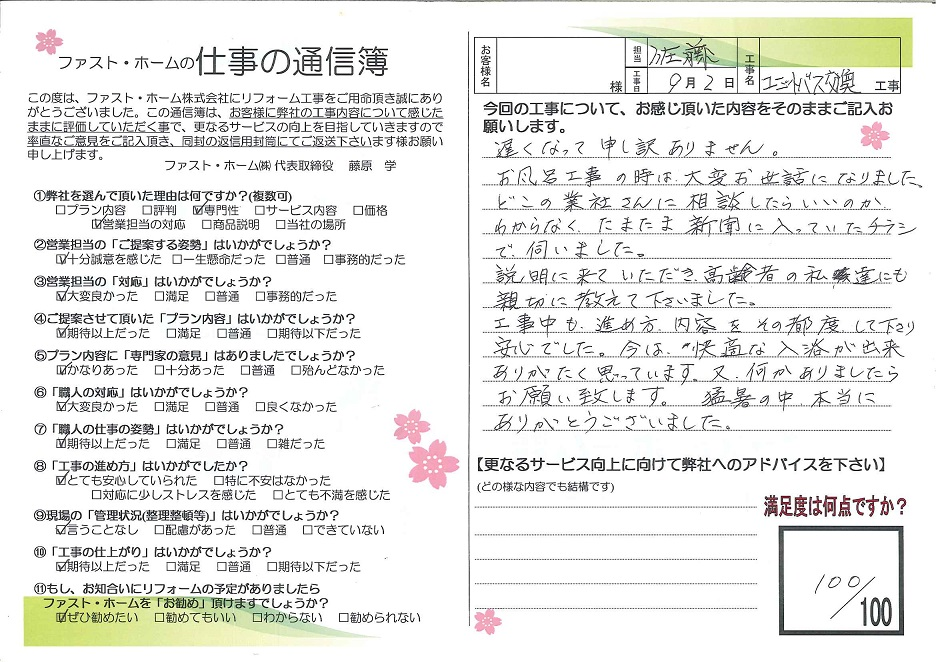 ファスト・ホームの仕事の通信簿
この度は、ファスト・ホーム株式会社にリフォーム工事をご用命頂き誠にあり
がとうございました。この通信簿は、お客様に弊社の工事内容について感じた
ままに評価していただく事で、更なるサービスの向上を目指していきますので
率直なご意見をご記入頂き、同封の返信用封筒にてご返送下さいます様お願い
申し上げます。
ファスト・ホーム㈱ 代表取締役 藤原 学
①弊社を選んで頂いた理由は何ですか?(複数可)
□プラン内容 □評判 ☑専門性 □サービス内容 □価格
☑営業担当の対応 □商品説明 □当社の場所
②営業担当の「ご提案する姿勢」はいかがでしょうか?
☑十分誠意を感じた □一生懸命だった □普通 □事務的だった
③営業担当の「対応」はいかがでしょうか?
☑大変良かった □満足 □普通 □事務的だった
④ご提案させて頂いた「プラン内容」はいかがでしょうか?
☑期待以上だった □満足 □普通 □期待以下だった
⑤プラン内容に「専門家の意見」はありましたでしょうか?
☑かなりあった □十分あった □普通 □殆んどなかった
⑥「職人の対応」はいかがでしょうか?
☑大変良かった □満足 □普通 □良くなかった
⑦「職人の仕事の姿勢」はいかがでしょうか?
☑期待以上だった □満足 □普通 □雑だった
⑧「工事の進め方」はいかがでしたか?
☑とても安心していられた □特に不安はなかった
□対応に少しストレスを感じた □とても不満を感じた
⑨現場の「管理状況(整理整頓等)」はいかがでしょうか?
☑言うことなし □配慮があった □普通 □できていない
⑩「工事の仕上がり」はいかがでしょうか?
☑期待以上だった □満足 □普通 □期待以下だった
⑪もし、お知合いにリフォームの予定がありましたら
ファスト・ホームを「お勧め」頂けますでしょうか?
☑ぜひ勧めたい □勧めてもいい □わからない □勧められない
お客様名 様 担当 佐藤 工事日 9月2日 工事名 ユニットバス交換 工事
今回の工事について、お感じ頂いた内容をそのままご記入お
願いします。
遅くなって申し訳ありません。
お風呂工事の時は、大変お世話になりました、
どこの業社さんに相談したらいいのか
わからなく、たまたま新聞に入っていたチラシ
で、伺いました。
説明に来ていただき、高齢者の私達にも
親切に教えて下さいました。
工事中も、進め方、内容をその都度、して下さり
安心でした。今は、快適な入浴が出来
ありがたく思っています。又、何かありましたら
お願い致します。 猛暑の中、本当に
ありがとうございました。
【更なるサービス向上に向けて弊社へのアドバイスを下さい】
(どの様な内容でも結構です)
満足度は何点ですか?
100/100